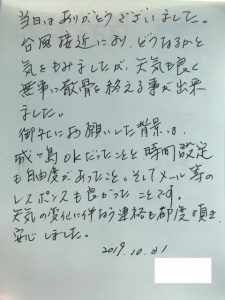 当日はありがとうございました。
台風接近により、どうなるかと
気をもみましたが、天気も良く
無事に散骨を終える事が出来
ました。
御社にお願いした背景は、
城ヶ島OKだったことと時間設定
も自由度があったこと。そしてメール等の
レスポンスも良かったことです。
天気の変化に伴なう連絡も都度頂き
安心しました。
2019.10.31